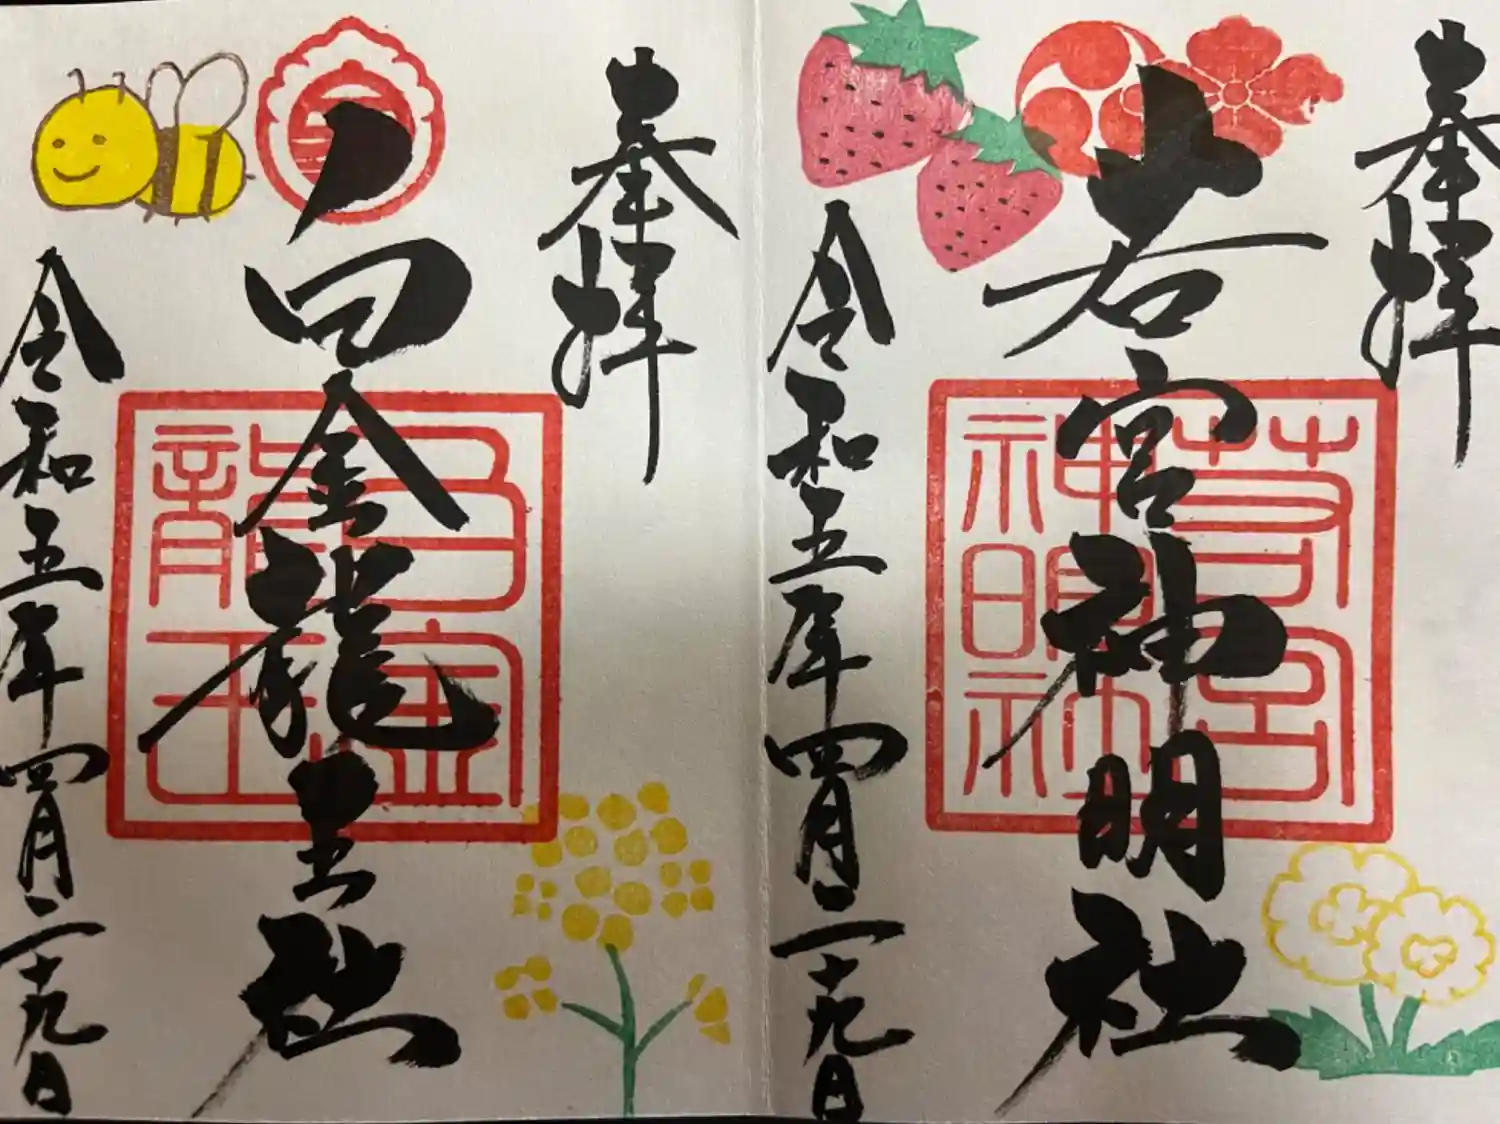 奉拝
若宮神明社
令和五年四月二十九日
奉拝
白金龍王社
令和五年四月二十九日
若宮
神明社
白金
龍王